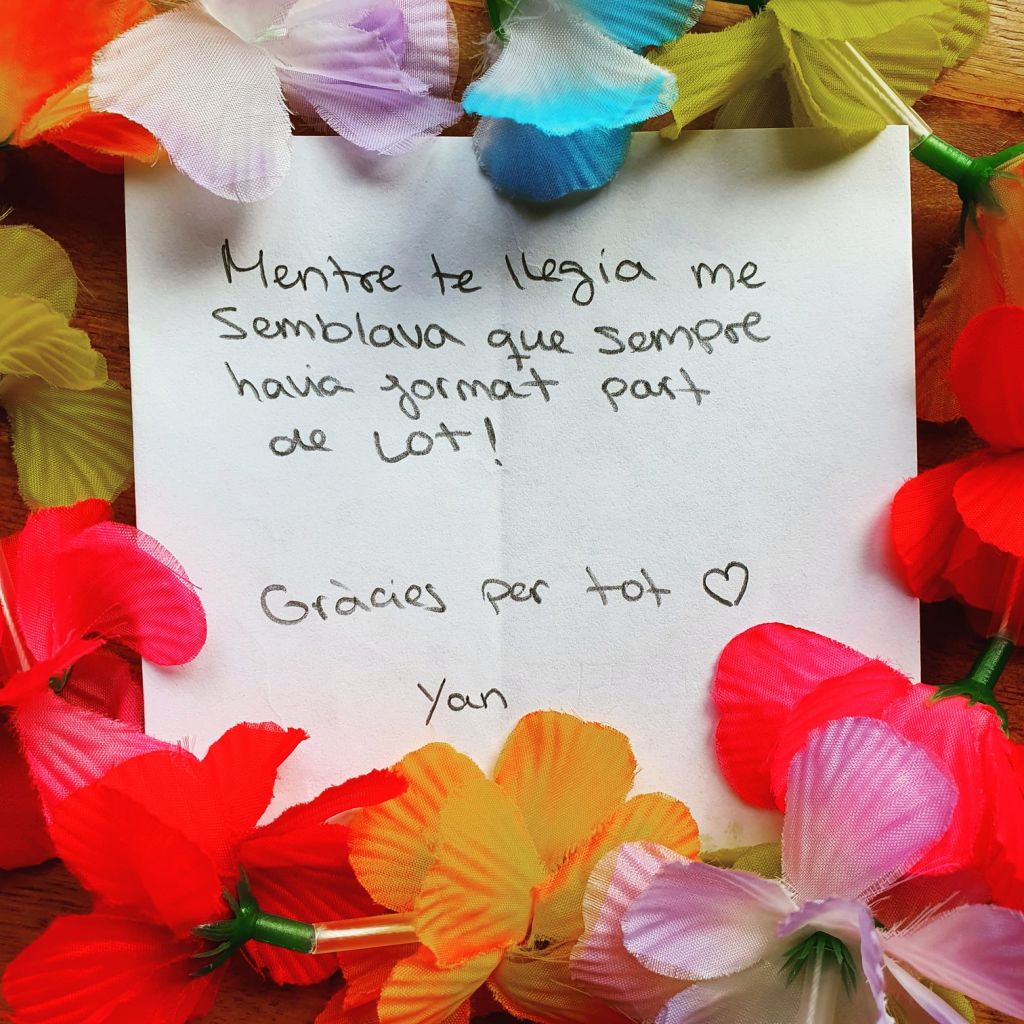 Mentre te llegia me
semblava que sempre
havia format part
de LOT!
Gràcies per tot ♡
Yan